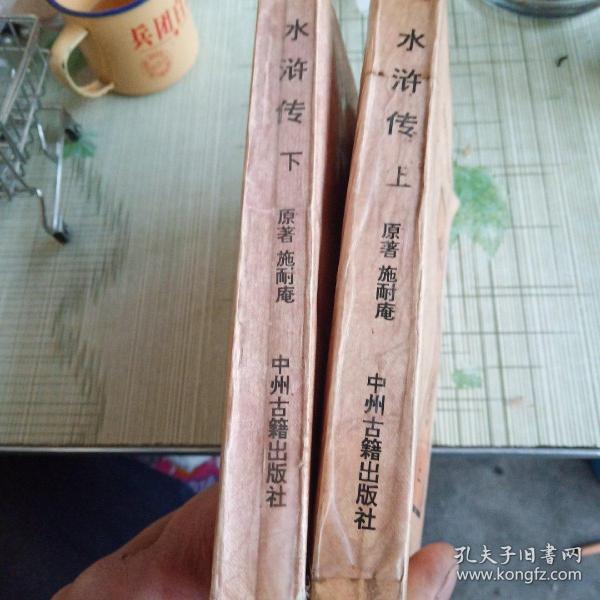 水浒传 下
原著 施耐庵
中州古籍出版社
水浒传 上
原著 施耐庵
中州古籍出版社
兵团
孔夫子旧书网
www.kongfz.com